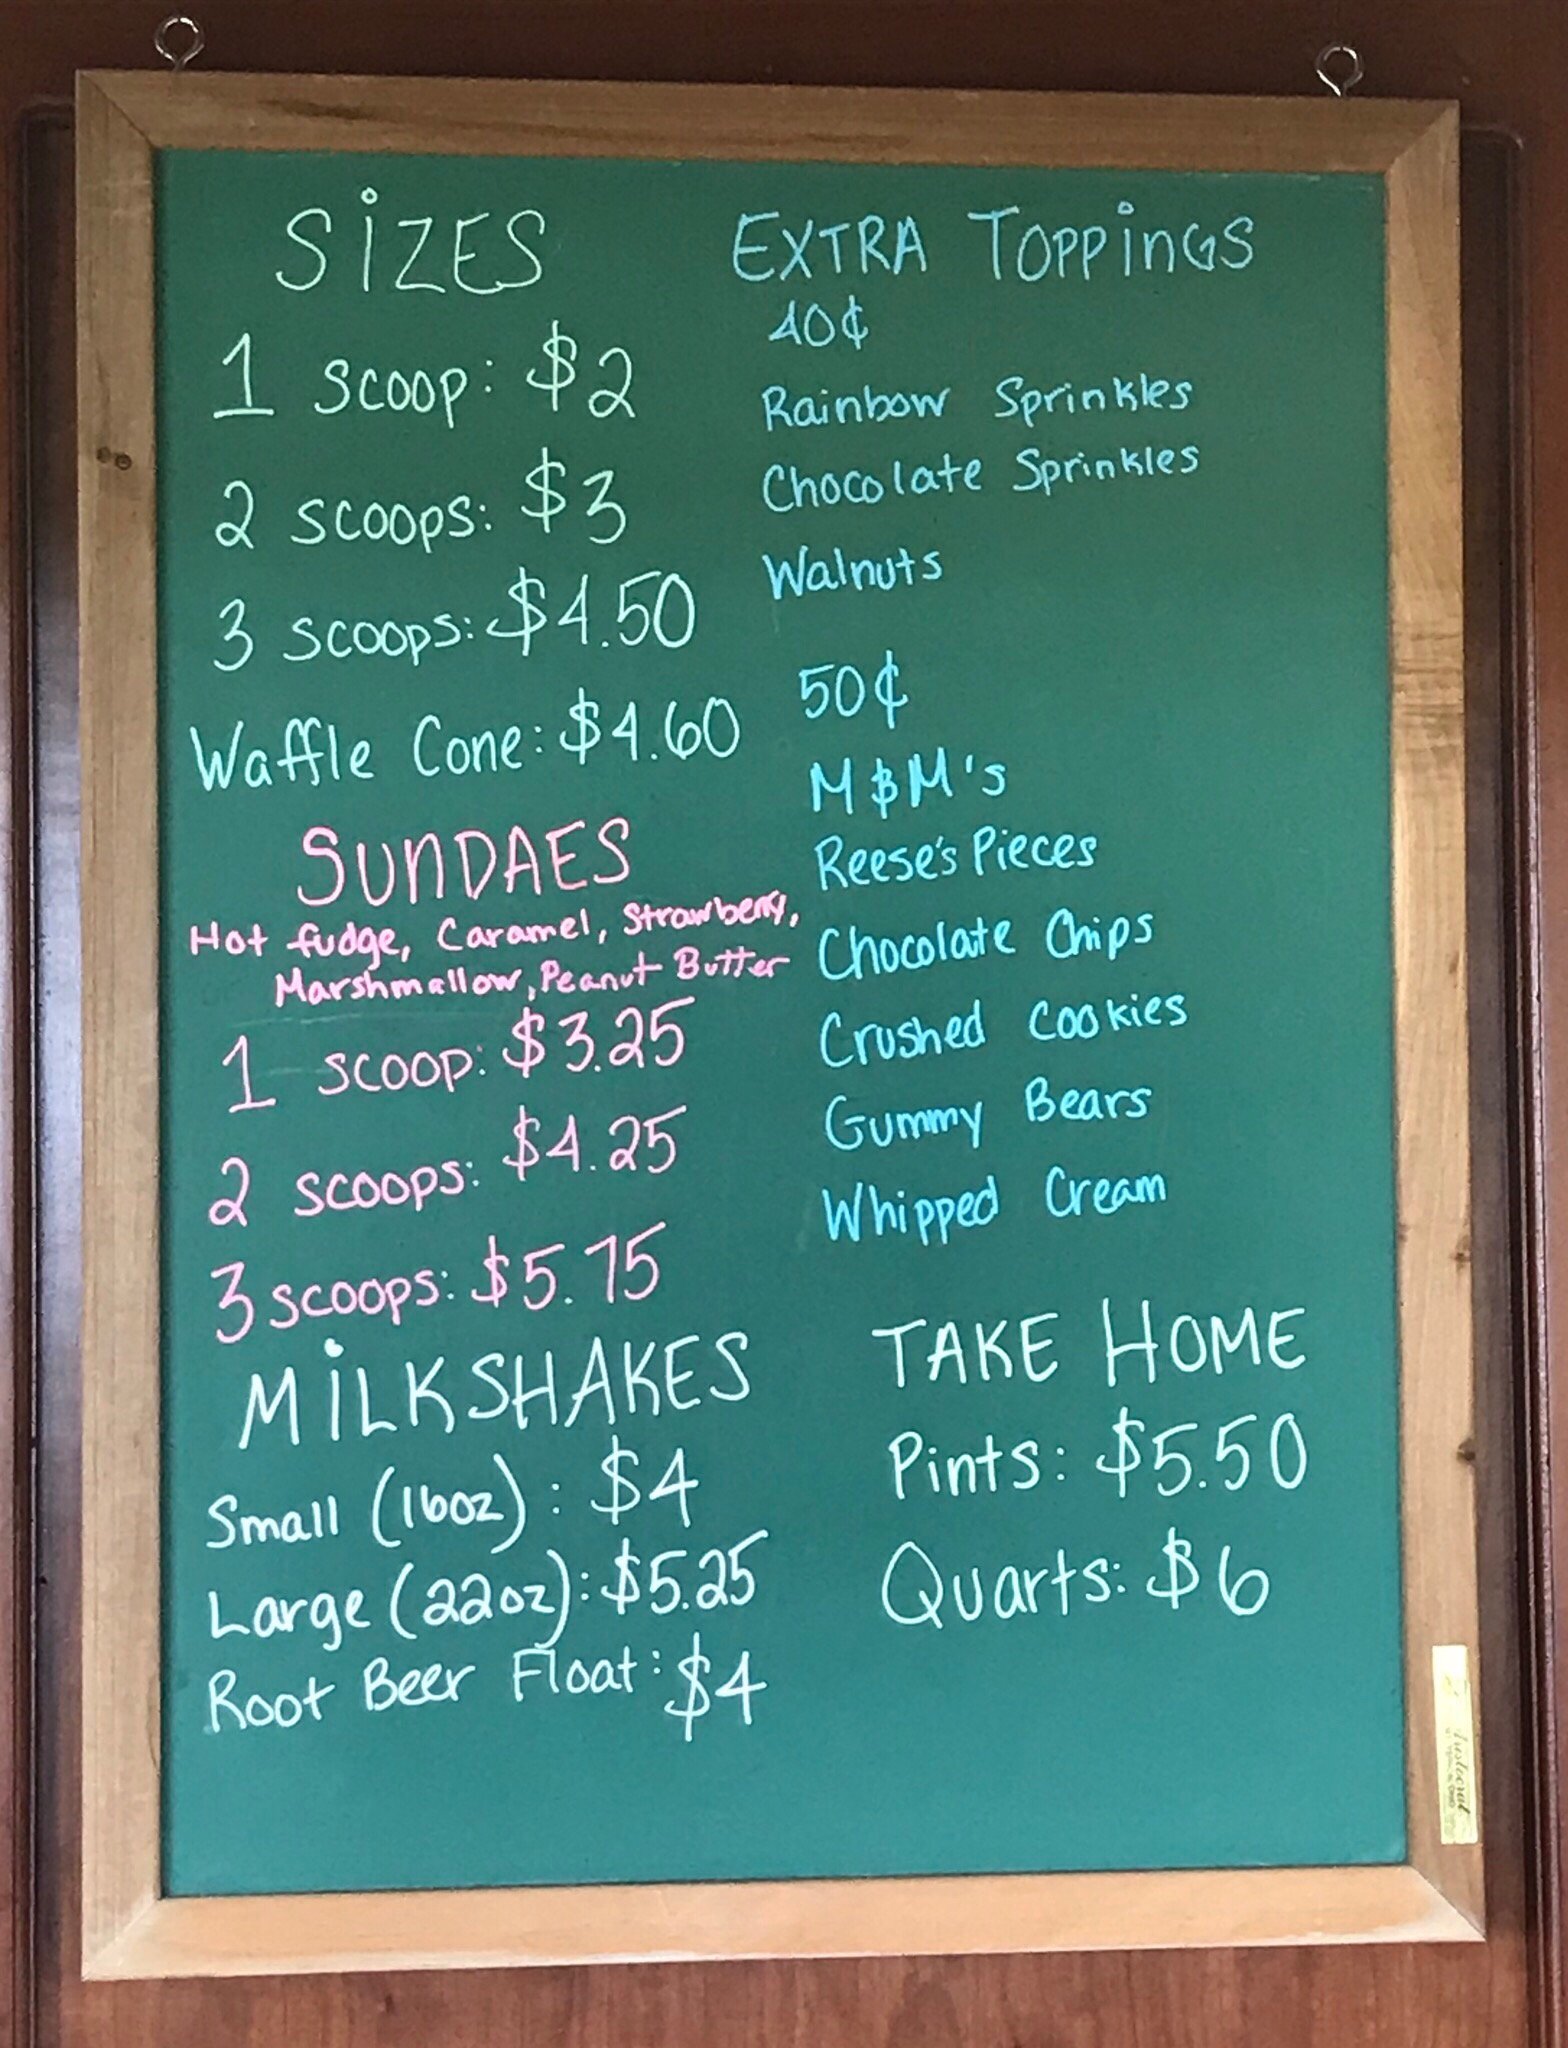 SiZES
1 SCOOP: $2
2 SCOOPS: $3
3 SCOOPS: $4.50
Waffle Cone: $4.60
SUNDAES
Hot fudge, Caramel, Strawberry,
Marshmallow, Peanut Butter
1 SCOOP: $3.25
2 SCOOPS: $4.25
3 SCOOPS: $5.75
MiLKSHAKES
Small (16oz): $4
Large (22oz): $5.25
Root Beer Float: $4
EXTRA TOPPiNGS
40¢
Rainbow Sprinkles
Chocolate Sprinkles
Walnuts
50¢
M&M's
Reese's Pieces
Chocolate Chips
Crushed Cookies
Gummy Bears
Whipped Cream
TAKE HOME
Pints: $5.50
Quarts: $6